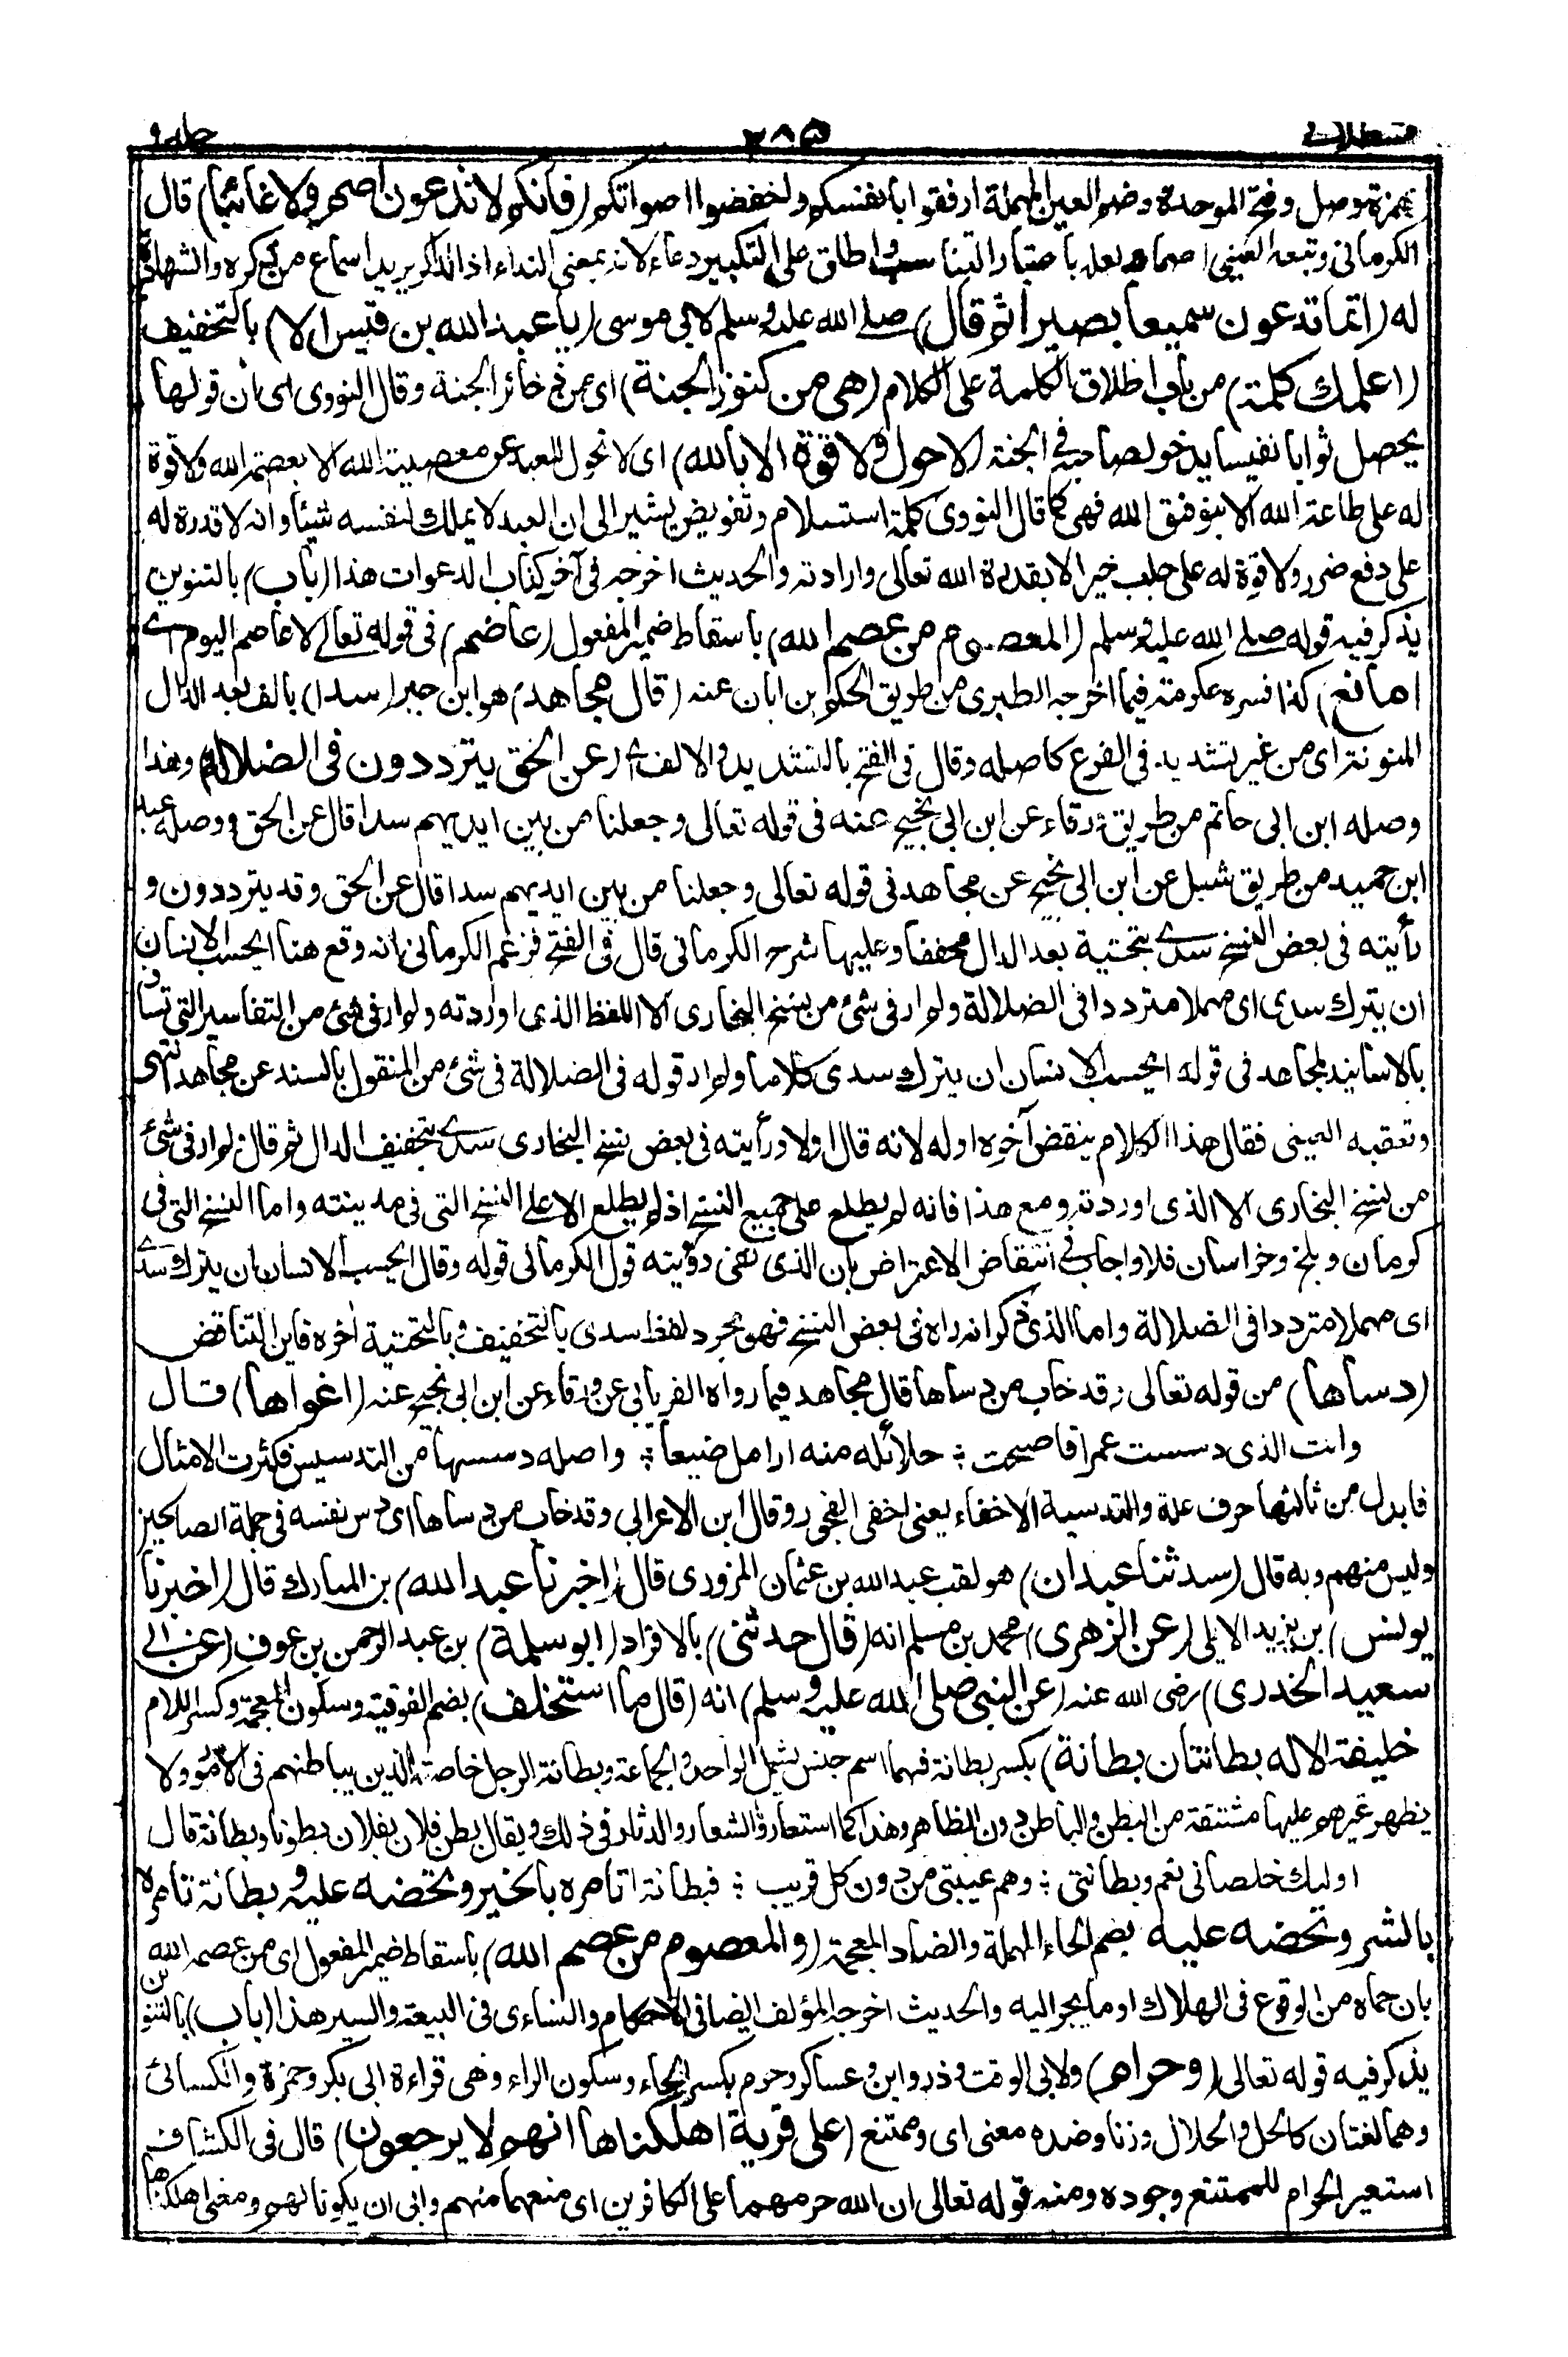 قسطلانی ٣٨٥ جلد ٩
بهمزة وصل وفتح الموحدة وضم العين المهملة ارفقوا بانفسكم واخفضوا اصواتكم (فانكم لا تدعون اصم ولا غائبا) قال
الكرمانى وتبعه العينى اصما لعله باعتبار التناسب واطلق على التكبير دعاء لانه بمعنى النداء اذ الذاكر يريد اسماع من ذكره والشهادة
له (انما تدعون سميعا بصيرا ثم قال) صلى الله عليه وسلم لابى موسى (يا عبد الله بن قيس الا) بالتخفيف
(اعلمك كلمة) من باب اطلاق الكلمة على الكلام (هى من كنوز الجنة) اى من ذخائر الجنة وقال النووى اى ان قولها
يحصل ثوابا نفيسا يدخر لصاحبه فى الجنة (لا حول ولا قوة الا بالله) اى لا تحول للعبد عن معصية الله الا بعصمة الله ولا قوة
له على طاعة الله الا بتوفيق الله فهى كما قال النووى كلمة استسلام وتفويض يشير الى ان العبد لا يملك لنفسه شيئا وانه لا قدرة له
على دفع ضر ولا قوة له على جلب خير الا بقدرة الله تعالى وارادته والحديث اخرجه فى آخر كتاب الدعوات هذا (باب) بالتنوين
يذكر فيه قوله صلى الله عليه وسلم (المعصوم من عصم الله) باسقاط ضمير المفعول (عاصم) فى قوله تعالى لا عاصم اليوم اى
(مانع) كذا فسره عكرمة فيما اخرجه الطبرى من طريق الحكم بن ابان عنه (قال مجاهد) هو ابن جبر (سدا) بالف بعد الدال
المنونة اى من غير تشديد فى الفرع كاصله وقال فى الفتح بالتشديد والالف اى (عن الحق يترددون فى الضلالة) وهذا
وصله ابن ابى حاتم من طريق ورقاء عن ابن ابى نجيح عنه فى قوله تعالى وجعلنا من بين ايديهم سدا قال عن الحق ووصله عبد
ابن حميد من طريق شبل عن ابن ابى نجيح عن مجاهد فى قوله تعالى وجعلنا من بين ايديهم سدا قال عن الحق وقد يترددون و
رأيته فى بعض النسخ سدى بتحتية بعد الدال مخففا وعليها شرح الكرمانى قال فى الفتح فزعم الكرمانى انه وقع هنا ايحسب الانسان
ان يترك سدى اى مهملا مترددا فى الضلالة ولم ار فى شئ من نسخ البخارى الا اللفظ الذى اوردته ولم ار فى شئ من التفاسير التى تساق
بالاسانيد لمجاهد فى قوله ايحسب الانسان ان يترك سدى كلاما ولم ار قوله فى الضلالة فى شئ من المنقول بالسند عن مجاهد انتهى
وتعقبه العينى فقال هذا الكلام ينقض آخره اوله لانه قال اولا ورأيته فى بعض نسخ البخارى سدى بتخفيف الدال ثم قال لم ار فى شئ
من نسخ البخارى الا الذى اوردته ومع هذا فانه لم يطلع على جميع النسخ اذ لم يطلع الا على النسخ التى فى مدينته واما النسخ التى فى
كرمان وبلخ وخراسان فلا واجاب فى انتقاض الاعتراض بان الذى نفى رؤيته قول الكرمانى قوله وقال ايحسب الانسان ان يترك سدى
اى مهملا مترددا فى الضلالة واما الذى ذكر انه راه فى بعض النسخ فهو مجرد لفظ سدى بالتخفيف وبالتحتية آخره فاين التناقض
(دساها) من قوله تعالى وقد خاب من دساها قال مجاهد فيما رواه الفريابى عن ورقاء عن ابن ابى نجيح عنه (اغواها) قال
وانت الذى دسست عمرا فاصبحت ؛ حلائله منه ارامل ضيعا ؛ واصله دسسها من التدسيس فكثرت الامثال
فابدل من ثالثها حرف علة والتدسية الاخفاء يعنى اخفى الفجور وقال ابن الاعرابى وقد خاب من دساها اى دس نفسه فى جملة الصالحين
وليس منهم وبه قال (حدثنا عبدان) هو لقب عبد الله بن عثمان المروزى قال (اخبرنا عبد الله) بن المبارك قال (اخبرنا
يونس) بن يزيد الايلى (عن الزهرى) محمد بن مسلم انه (قال حدثنى) بالافراد (ابو سلمة) بن عبد الرحمن بن عوف (عن ابى
سعيد الخدرى) رضى الله عنه (عن النبى صلى الله عليه وسلم) انه (قال ما استخلف) بضم الفوقية وسكون المعجمة وكسر اللام
خليفة الا له بطانتان بطانة) بكسر بطانة فيهما اسم جنس يشمل الواحد والجماعة وبطانة الرجل خاصته الذين يباطنهم فى الامور ولا
يظهر غيرهم عليها مشتقة من البطن والباطن دون الظاهر وهذا كما استعاروا الشعار والدثار فى ذلك ويقال بطن فلان بفلان بطونا وبطانة قال
اولئك خلصانى نعم وبطانتى ؛ وهم عيبتى من دون كل قريب ؛ فبطانة (تامره بالخير وتحضه عليه وبطانة تامره
بالشر وتحضه عليه بضم الحاء المهملة والضاد المعجمة (والمعصوم من عصم الله) باسقاط ضمير المفعول اى من عصمه الله
بان حماه من الوقوع فى الهلاك او ما يجر اليه والحديث اخرجه المؤلف ايضا فى الاحكام والنساءى فى البيعة والسير هذا (باب) بالتنوين
يذكر فيه قوله تعالى (وحرام) ولابى الوقت وذر وابن عساكر وحرم بكسر الحاء وسكون الراء وهى قراءة ابى بكر وحمزة والكسائى
وهما لغتان كالحل والحلال وزنا وضده معنى اى وممتنع (على قرية اهلكناها انهم لا يرجعون) قال فى الكشاف
استعير الحرام للممتنع وجوده ومنه قوله تعالى ان الله حرمهما على الكافرين اى منعهما منهم وابى ان يكونا لهم ومعنى اهلكناها